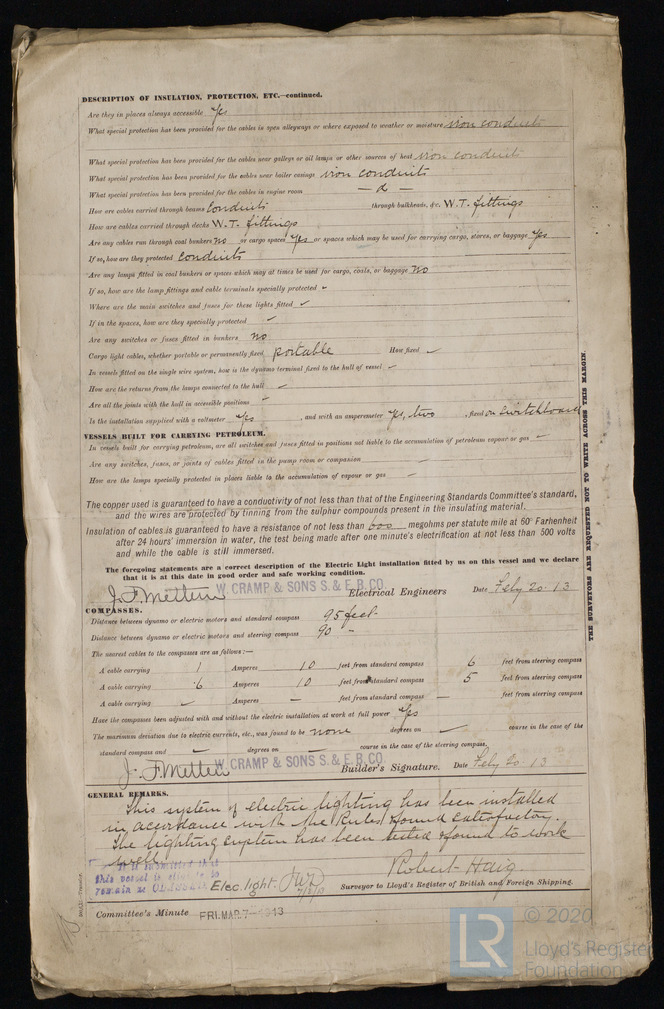 DESCRIPTION OF INSULATION, PROTECTION, ETC.—continued.
Are they in places always accessible Yes
What special protection has been provided for the cables in open alleyways or where exposed to weather or moisture iron conduits
What special protection has been provided for the cables near galleys or oil lamps or other sources of heat iron conduits
What special protection has been provided for the cables near boiler casings iron conduits
What special protection has been provided for the cables in engine room — do —
How are cables carried through beams Conduits through bulkheads, &c. W.T. fittings
How are cables carried through decks W.T. fittings
Are any cables run through coal bunkers no or cargo spaces Yes or spaces which may be used for carrying cargo, stores, or baggage Yes
If so, how are they protected Conduits
Are any lamps fitted in coal bunkers or spaces which may at times be used for cargo, coals, or baggage No
If so, how are the lamp fittings and cable terminals specially protected ✓
Where are the main switches and fuses for these lights fitted ✓
If in the spaces, how are they specially protected ✓
Are any switches or fuses fitted in bunkers no
Cargo light cables, whether portable or permanently fixed portable How fixed ✓
In vessels fitted on the single wire system, how is the dynamo terminal fixed to the hull of vessel ✓
How are the returns from the lamps connected to the hull ✓
Are all the joints with the hull in accessible positions ✓
Is the installation supplied with a voltmeter Yes, and with an amperemeter Yes, two, fixed on Switchboard
VESSELS BUILT FOR CARRYING PETROLEUM.
In vessels built for carrying petroleum, are all switches and fuses fitted in positions not liable to the accumulation of petroleum vapour or gas —
Are any switches, fuses, or joints of cables fitted in the pump room or companion
How are the lamps specially protected in places liable to the accumulation of vapour or gas ✓
The copper used is guaranteed to have a conductivity of not less than that of the Engineering Standards Committee's standard,
and the wires are protected by tinning from the sulphur compounds present in the insulating material.
Insulation of cables is guaranteed to have a resistance of not less than 600 megohms per statute mile at 60° Farhenheit
after 24 hours' immersion in water, the test being made after one minute's electrification at not less than 500 volts
and while the cable is still immersed.
The foregoing statements are a correct description of the Electric Light installation fitted by us on this vessel and we declare
that it is at this date in good order and safe working condition.
W. CRAMP & SONS S. & E. B. CO. Electrical Engineers Date Feby 20. 13
COMPASSES.
Distance between dynamo or electric motors and standard compass 95 feet
Distance between dynamo or electric motors and steering compass 90 "
The nearest cables to the compasses are as follows:—
A cable carrying 1 Amperes 10 feet from standard compass 6 feet from steering compass
A cable carrying .6 Amperes 10 feet from standard compass 5 feet from steering compass
A cable carrying — Amperes — feet from standard compass — feet from steering compass
Have the compasses been adjusted with and without the electric installation at work at full power Yes
The maximum deviation due to electric currents, etc., was found to be none degrees on — course in the case of the
standard compass and — degrees on — course in the case of the steering compass.
W. CRAMP & SONS S. & E. B. CO. Builder's Signature. Date Feby 20 13
GENERAL REMARKS.
This system of electric lighting has been installed
in accordance with the Rules & found satisfactory.
The lighting system has been tested & found to work
well.
It is submitted that
this vessel is eligible to
remain as CLASSED Elec. light.
Robert Haig
Surveyor to Lloyd's Register of British and Foreign Shipping.
Committee's Minute FRI. MAR. 7 - 1913
THE SURVEYORS ARE REQUESTED NOT TO WRITE ACROSS THIS MARGIN.
LR
© 2020
Lloyd's Register
Foundation